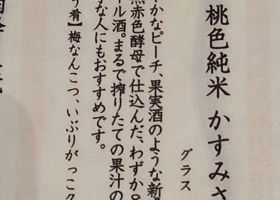 桃色純米 かすみさ
グラス
かなピーチ、果実酒のような新
赤色酵母で仕込んだ、わずか8
ル酒。まるで搾りたての果汁の
な人にもおすすめです。
う肴】梅なんこつ、いぶりがっこ